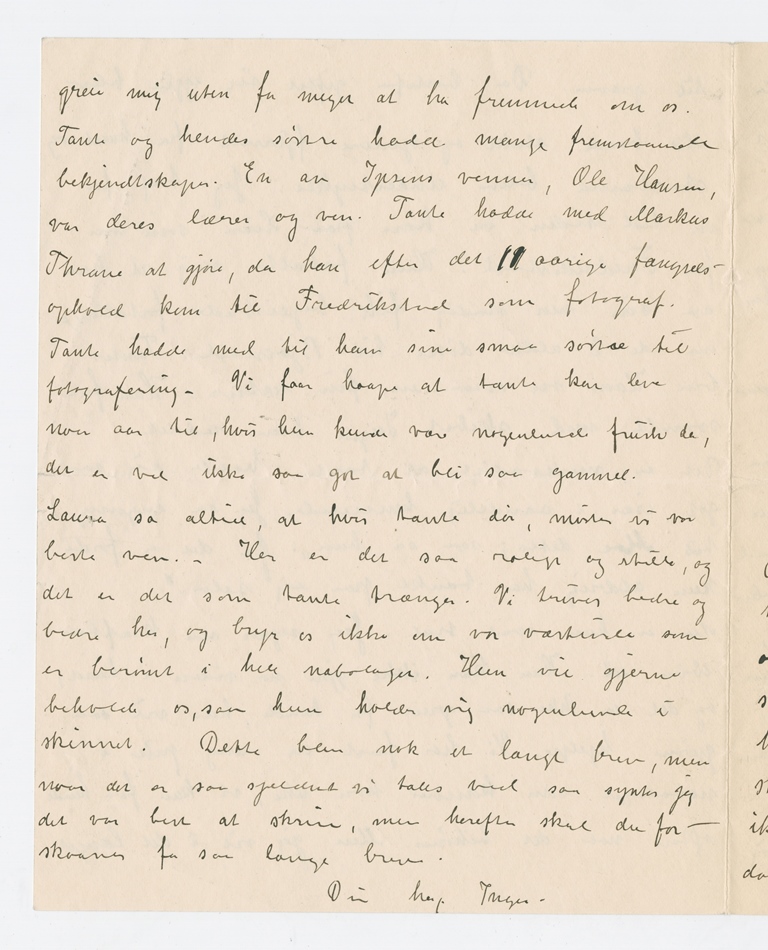 greie mig uten for meget at ha fremmede om os.
Tante og hendes søstre hadde mange fremstaaende
bekjendtskaper. En av Ipsens venner, Ole Hansen,
var deres lærer og ven. Tante hadde med Markus
Thrane at gjøre, da han efter det 11 aarige fængsels-
ophold kom til Fredrikstad som fotograf.
Tante hadde med til ham sine smaa søstre til
fotografering - Vi faar haape at tante kan leve
noen aar til, hvis hun kunde være nogenlunde frisk da,
det er vel ikke saa got at bli saa gammel.
Laura sa altid, at hvis tante dør, mister vi vor
beste ven. - Her er det saa rolig og stille, og
det er det som tante trænger. Vi trives bedre og
bedre her, og bryr os ikke om vor vertinde som
er berømt i hele nabolaget. Hun vil gjerne
beholde os, saa hun holder sig nogenlunde i
skinnet. Dette blev nok et langt brev, men
naar det er saa sjeldent vi tales ved saa syntes jeg
det var best at skrive, men herefter skal du for-
skaanes for saa lange breve.
Din heng. Inger.